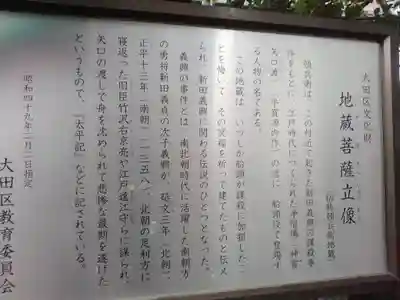 大田区文化財
地蔵菩薩立像
(伝頓兵衛地蔵)
頓兵衛は、この付近で起きた新田義興の謀殺事
件をもとに、江戸時代につくられた浄瑠璃「神霊
矢口渡」(平賀源内作)の渡し船頭役で登場す
る人物の名である。
この地蔵は、いつしか船頭が謀殺に加担したこ
とを悔いて、その冥福を祈って建てたものと伝え
られ、新田義興に関わる伝説のひとつとなった。
義興の事件とは、南北朝時代に活躍した南朝方
の勇将新田義貞の次子義興が、延文三年(北朝)、
正平十三年(南朝)(一三五八)、北朝の足利方に
寝返った旧臣竹沢右京亮や江戸遠江守らに謀られ、
矢口の渡しで舟を沈められて悲惨な最期を遂げた
というもので、『太平記』などに記されている。
昭和四十九年二月二日指定
大田区教育委員会